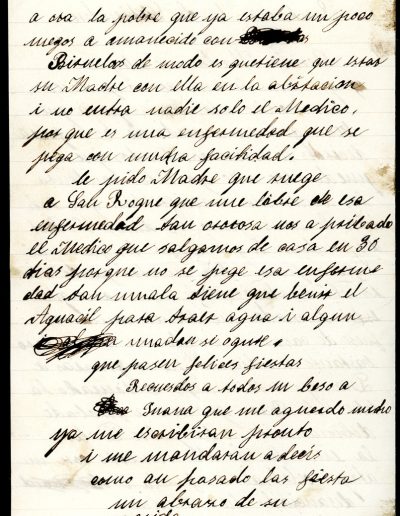 a ora la pobre que ya estaba un poco
megos a amanecido con
Biruelas de modo es quetiene que estar
su Madre con ella en la abitacion
i no entra nadie solo el Medico,
por que es una enfermedad que se
pega con mucha facilidad.
le pido Madre que ruege
a San Roque que me libre de esa
enfermedad tan ororosa nos a pribado
el Medico que salgamos de casa en 30
dias porque no se pege esa enferme
dad tan mala tiene que benir el
Aguacil para traer agua i algun
mandon se ogure,
que pasen felices fiestas
Recuerdos a todos un beso a
Juana que me aguerdo mucho
ya me escribiran pronto
i me mandaran a decir
como an pasado las fiesta
un abrazo de su